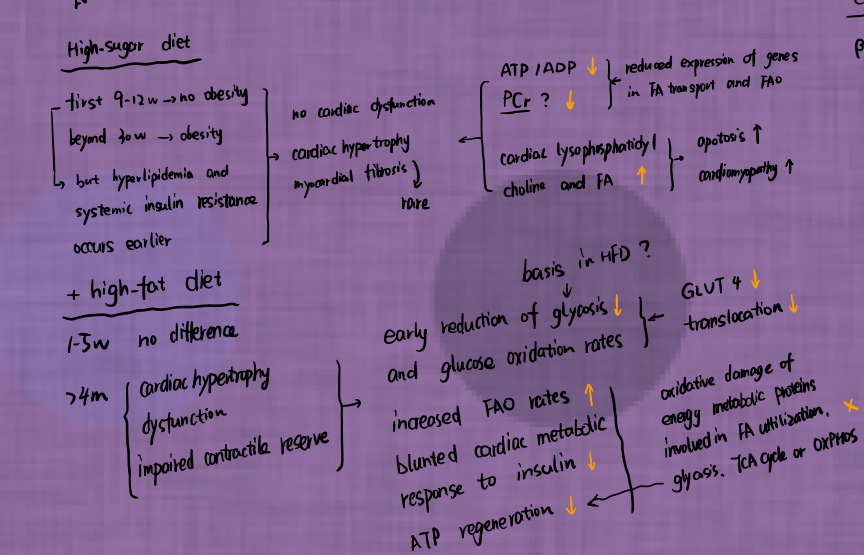 High-sugar diet
first 9-12w → no obesity
beyond 30w → obesity
but hyperlipidemia and
systemic insulin resistance
occurs earlier
no cardiac dysfunction
cardiac hypertrophy
myocardial fibrosis
rare
ATP/ADP ↓
PCr ? ↓
reduced expression of genes
in FA transport and FAO
cardiac lysophosphatidyl
choline and FA ↑
apotosis ↑
cardiomyopathy ↑
+ high-fat diet
1-5w no difference
>4m
cardiac hypertrophy
dysfunction
impaired contractile reserve
basis in HFD ?
↓
early reduction of glycosis ↓
and glucose oxidation rates
GLUT 4 ↓
translocation ↓
increased FAO rates ↑
blunted cardiac metabolic
response to insulin ↓
ATP regeneration ↓
oxidative damage of
energy metabolic proteins
involved in FA utilization, ×
glyosis. TCA cycle or OXPHOS
β